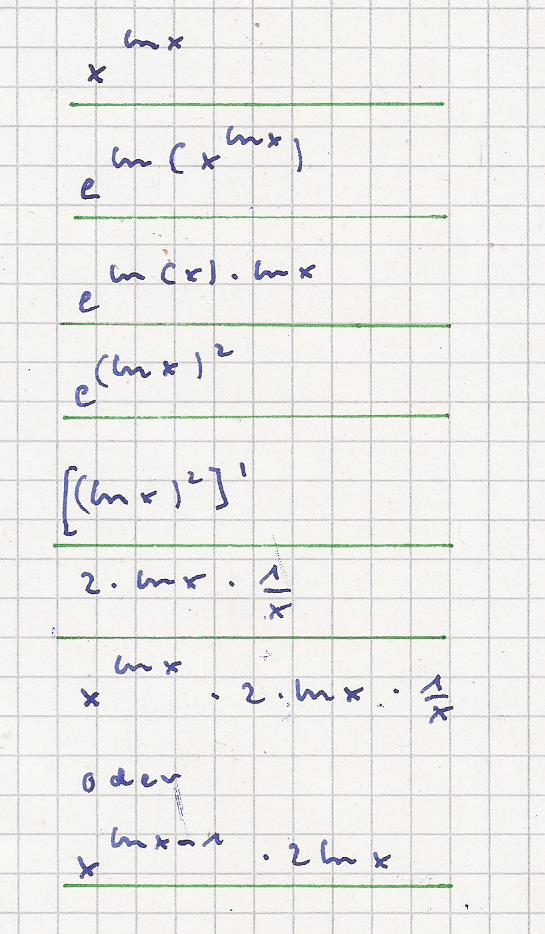 x^(ln x)
e^(ln(x^(ln x)))
e^(ln(x) · ln x)
e^((ln x)^2)
[(ln x)^2]'
2 · ln x · 1/x
x^(ln x) · 2 · ln x · 1/x
oder
x^(ln x - 1) · 2 ln x